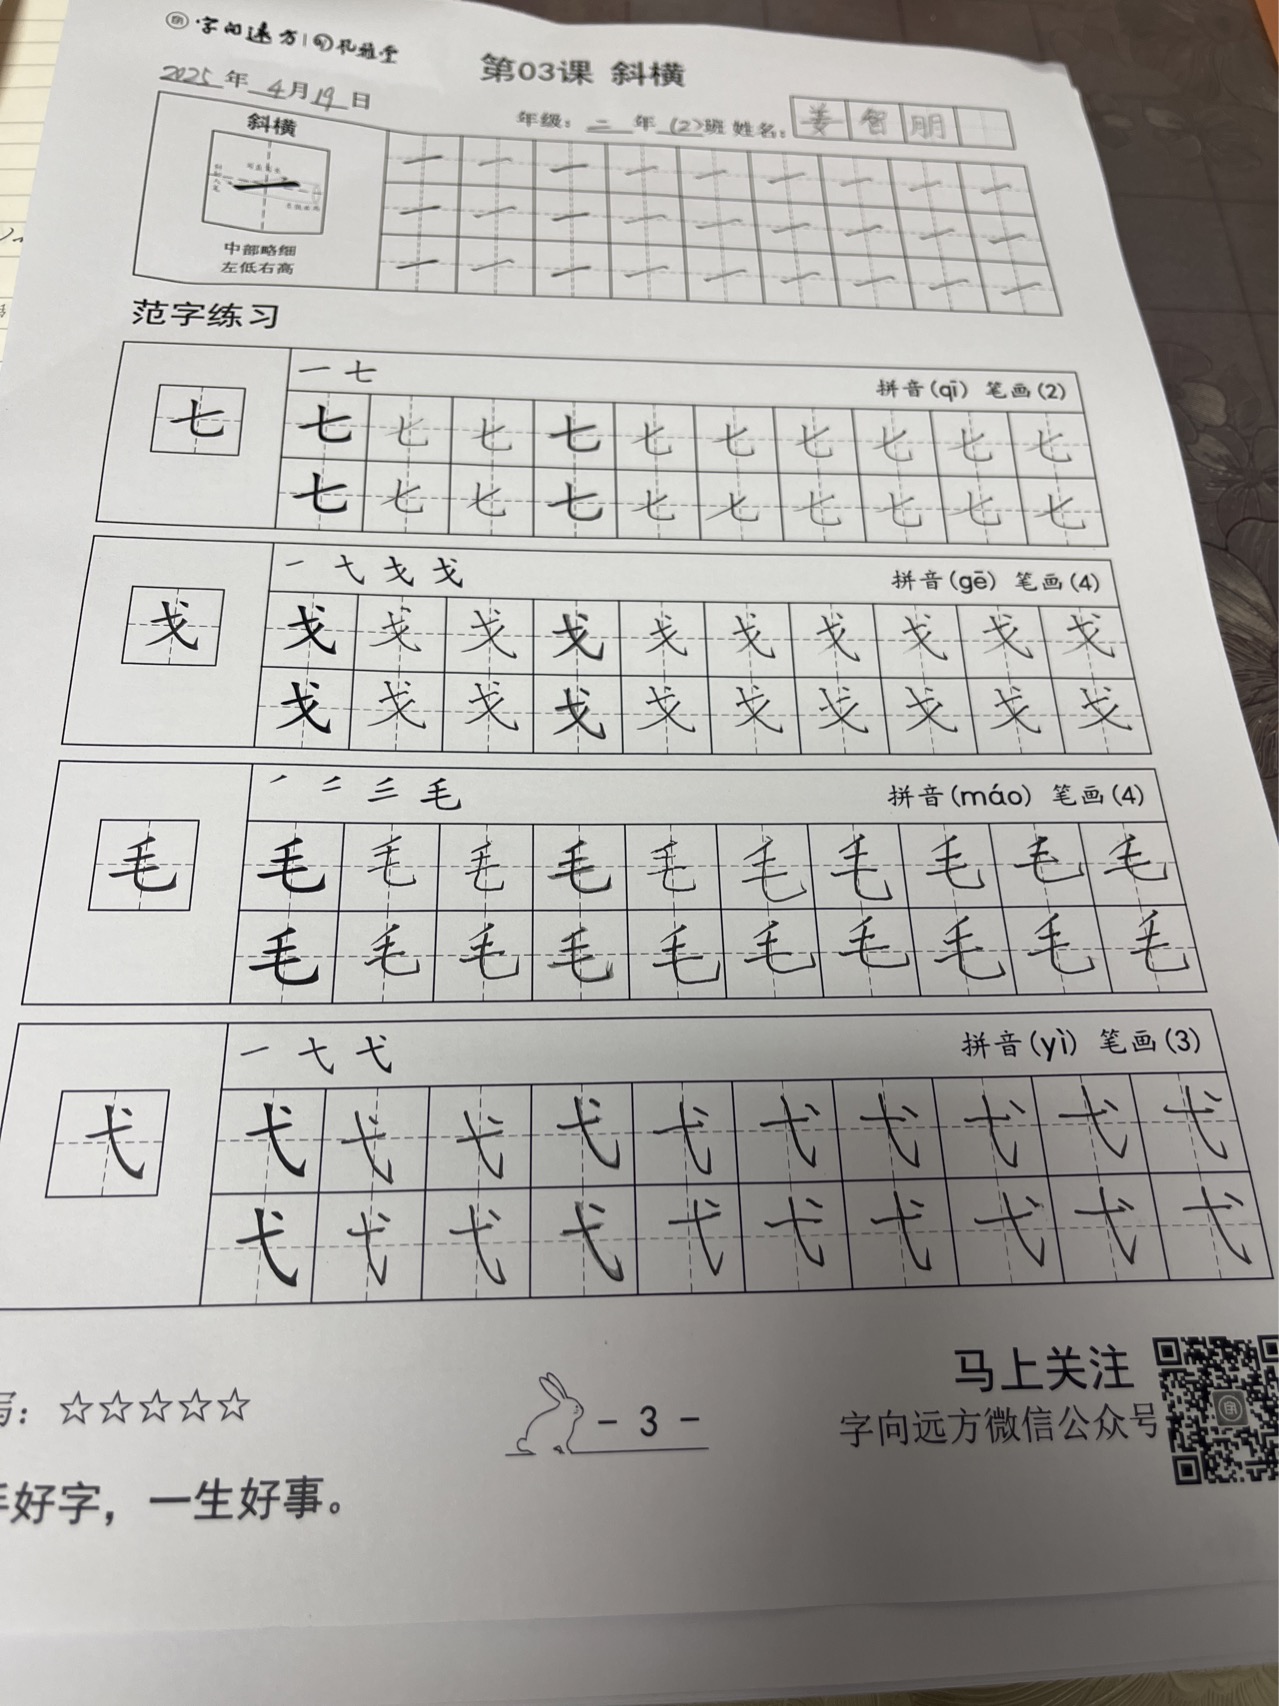 字向远方 | 孔雅堂
第03课 斜横
2025年4月19日
年级：二年(2)班 姓名：姜智朋
斜横
中部略细
左低右高
一 一 一 一 一 一 一 一 一
一 一 一 一 一 一 一 一 一
一 一 一 一 一 一 一 一 一
范字练习
一 七 拼音(qī) 笔画(2)
七
七 七 七 七 七 七 七 七 七 七
七 七 七 七 七 七 七 七 七 七
一 弋 戈 戈 拼音(gē) 笔画(4)
戈
戈 戈 戈 戈 戈 戈 戈 戈 戈 戈
戈 戈 戈 戈 戈 戈 戈 戈 戈 戈
㇒ 二 三 毛 拼音(máo) 笔画(4)
毛
毛 毛 毛 毛 毛 毛 毛 毛 毛 毛
毛 毛 毛 毛 毛 毛 毛 毛 毛 毛
一 七 弋 拼音(yì) 笔画(3)
弋
弋 弋 弋 弋 弋 弋 弋 弋 弋 弋
弋 弋 弋 弋 弋 弋 弋 弋 弋 弋
写：☆☆☆☆☆
- 3 -
马上关注
字向远方微信公众号
手好字，一生好事。